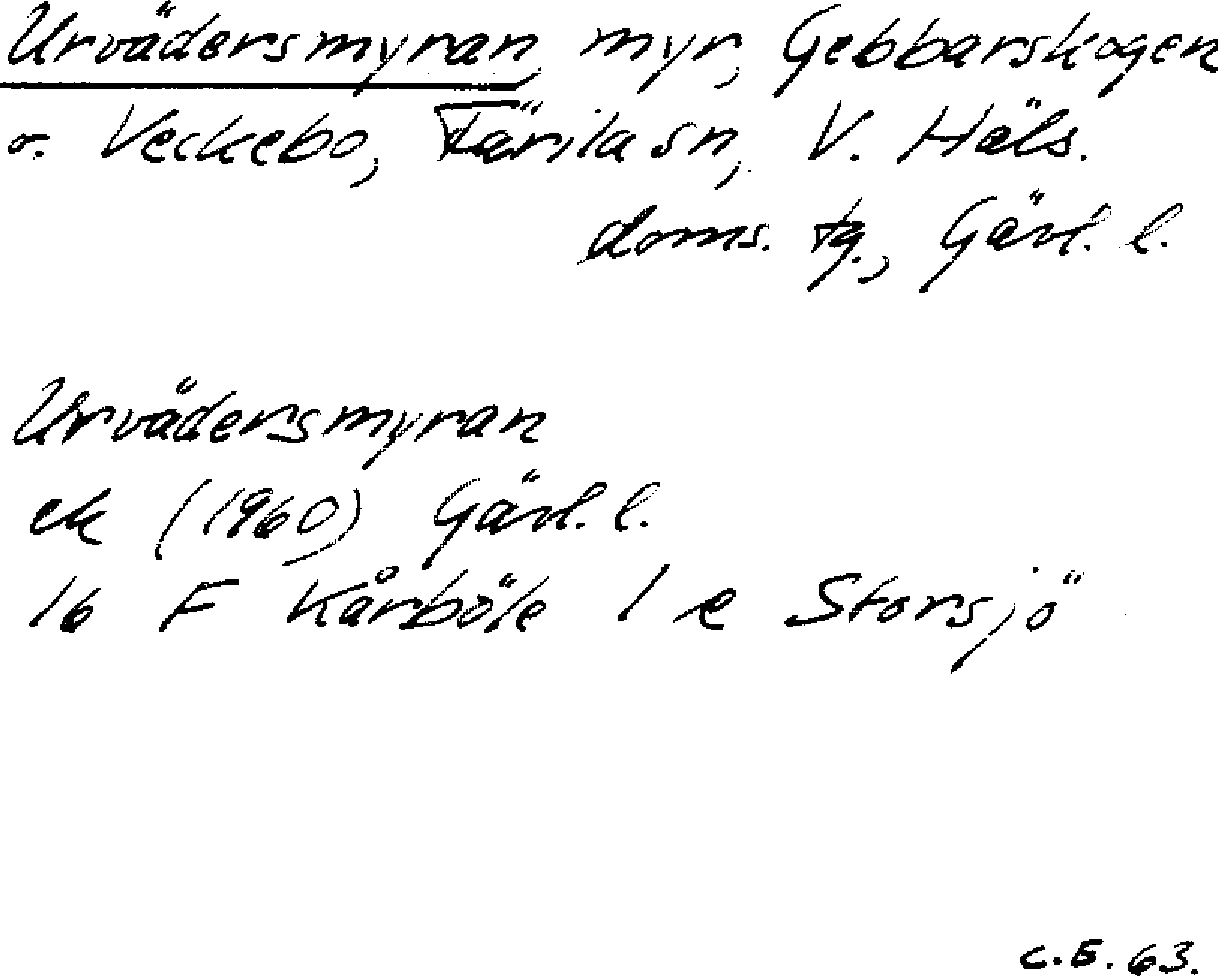 Urvädersmyran, myr, Gebbarskogen
o. Veckebo, Färila sn, V. Häls.
doms. tg., Gävl. l.
Urvädersmyran
ek (1960) Gävl. l.
16 F Kårböle 1 e Storsjö
C.E. 63.